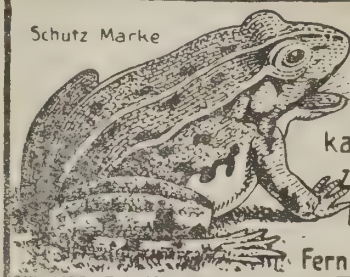 Schutz Marke
ka
Fern